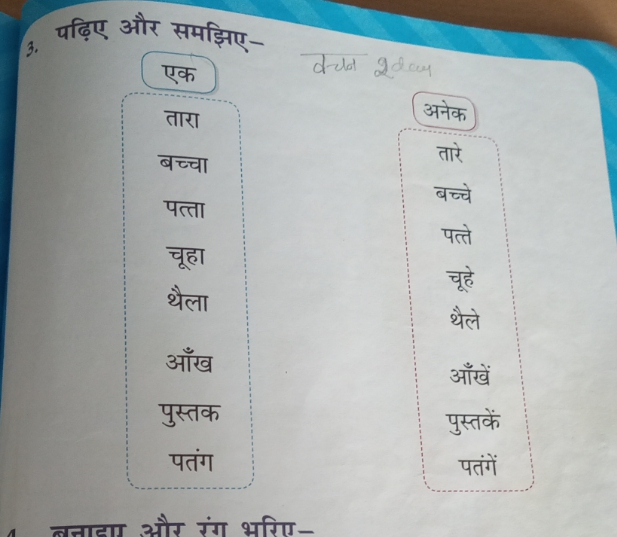 3. पढ़िए और समझिए–
वचन
एक
अनेक
तारा
तारे
बच्चा
बच्चे
पत्ता
पत्ते
चूहा
चूहे
थैला
थैले
आँख
आँखें
पुस्तक
पुस्तकें
पतंग
पतंगें
बनाइए और रंग भरिए–